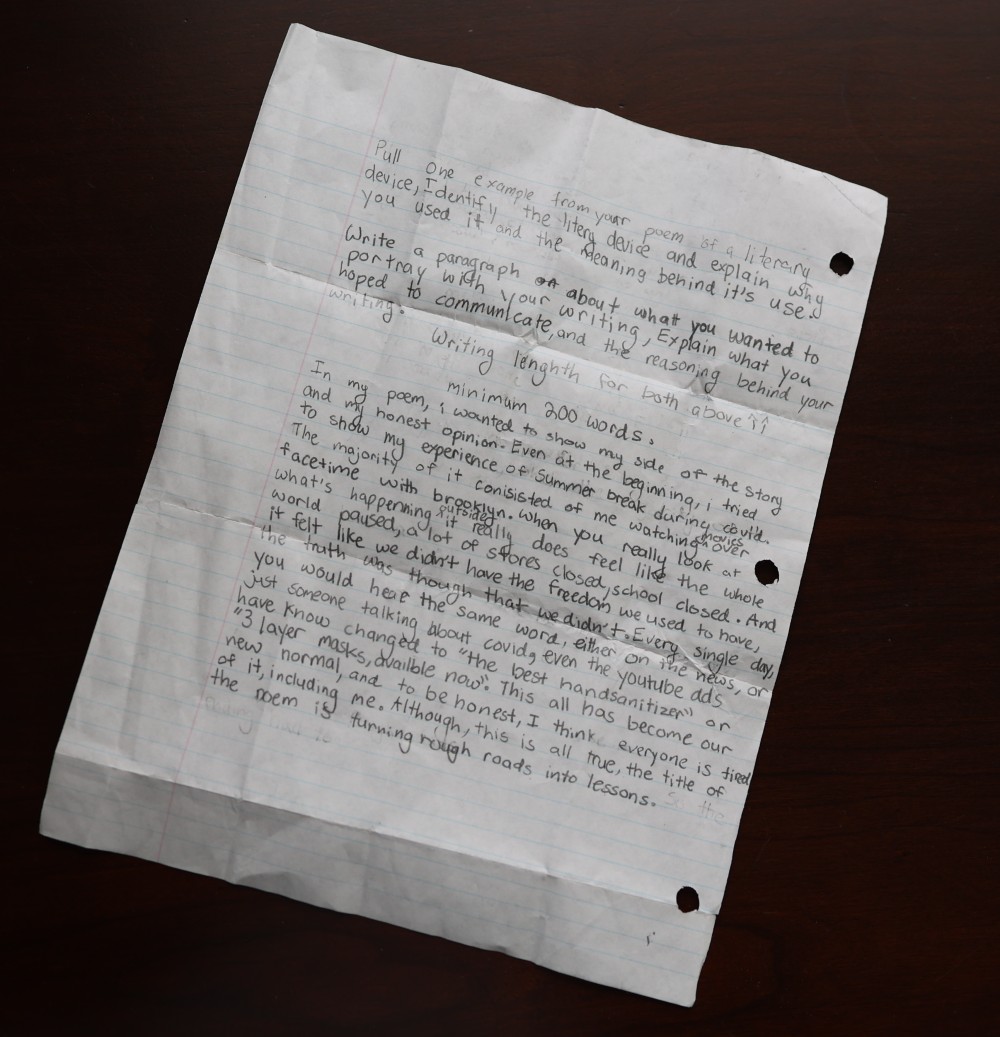 Pull one example from your poem of a literary
device, Identify the litery device and explain why
you used it and the meaning behind it's use.
Write a paragraph about what you wanted to
portray with your writing, Explain what you
hoped to communicate, and the reasoning behind your
writing.
Writing lenghth for both above ↑↑
minimum 200 words.
In my poem, i wanted to show my side of the story
and my honest opinion. Even at the beginning, i tried
to show my experience of Summer break during covid.
The majority of it conisisted of me watching movies on over
facetime with brooklyn. When you really look at
what's happenning outside, it really does feel like the whole
world paused, a lot of stores closed, school closed. And
it felt like we didn't have the freedom we used to have,
the truth was though that we didn't. Every single day,
you would hear the same word, either on the news, or
just someone talking about covid, even the youtube ads
have know changed to "the best handsanitizer" or
"3 layer masks, availble now". This all has become our
new normal, and to be honest, I think everyone is tired
of it, including me. Although, this is all true, the title of
the poem is turning rough roads into lessons. So the